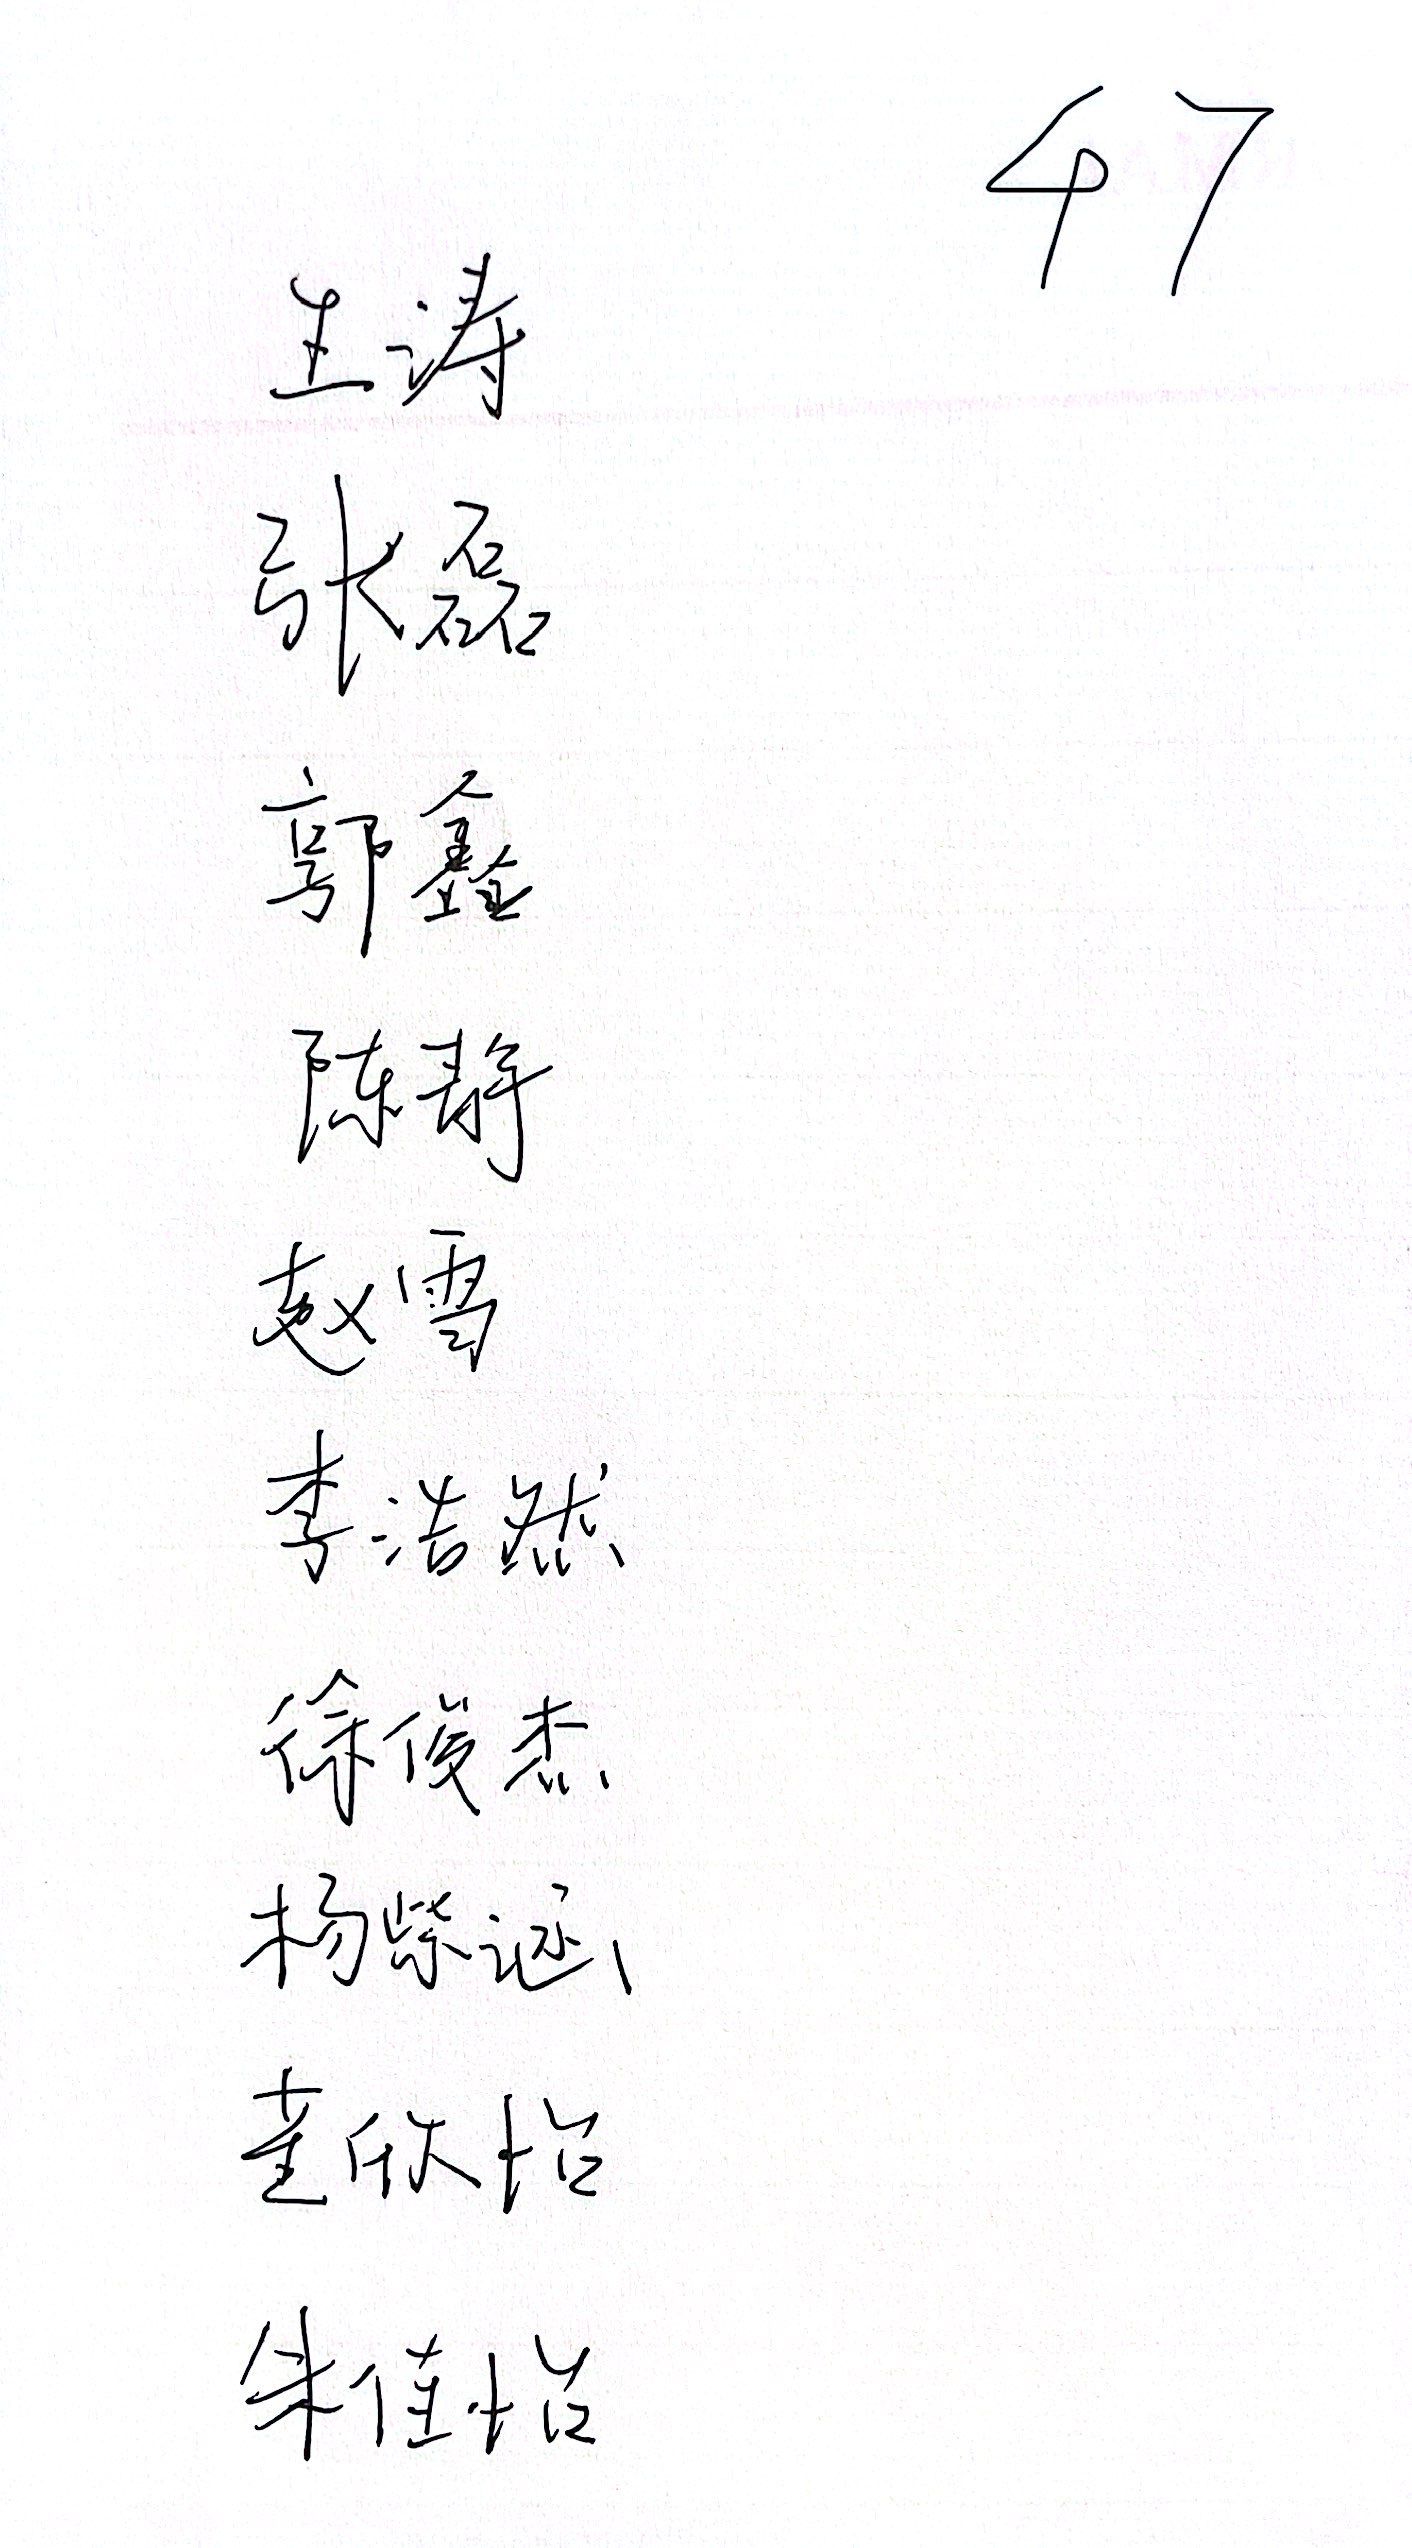 47
王涛
张磊
郭鑫
陈静
赵雪
李浩然
徐俊杰
杨紫涵
董欣怡
朱佳怡